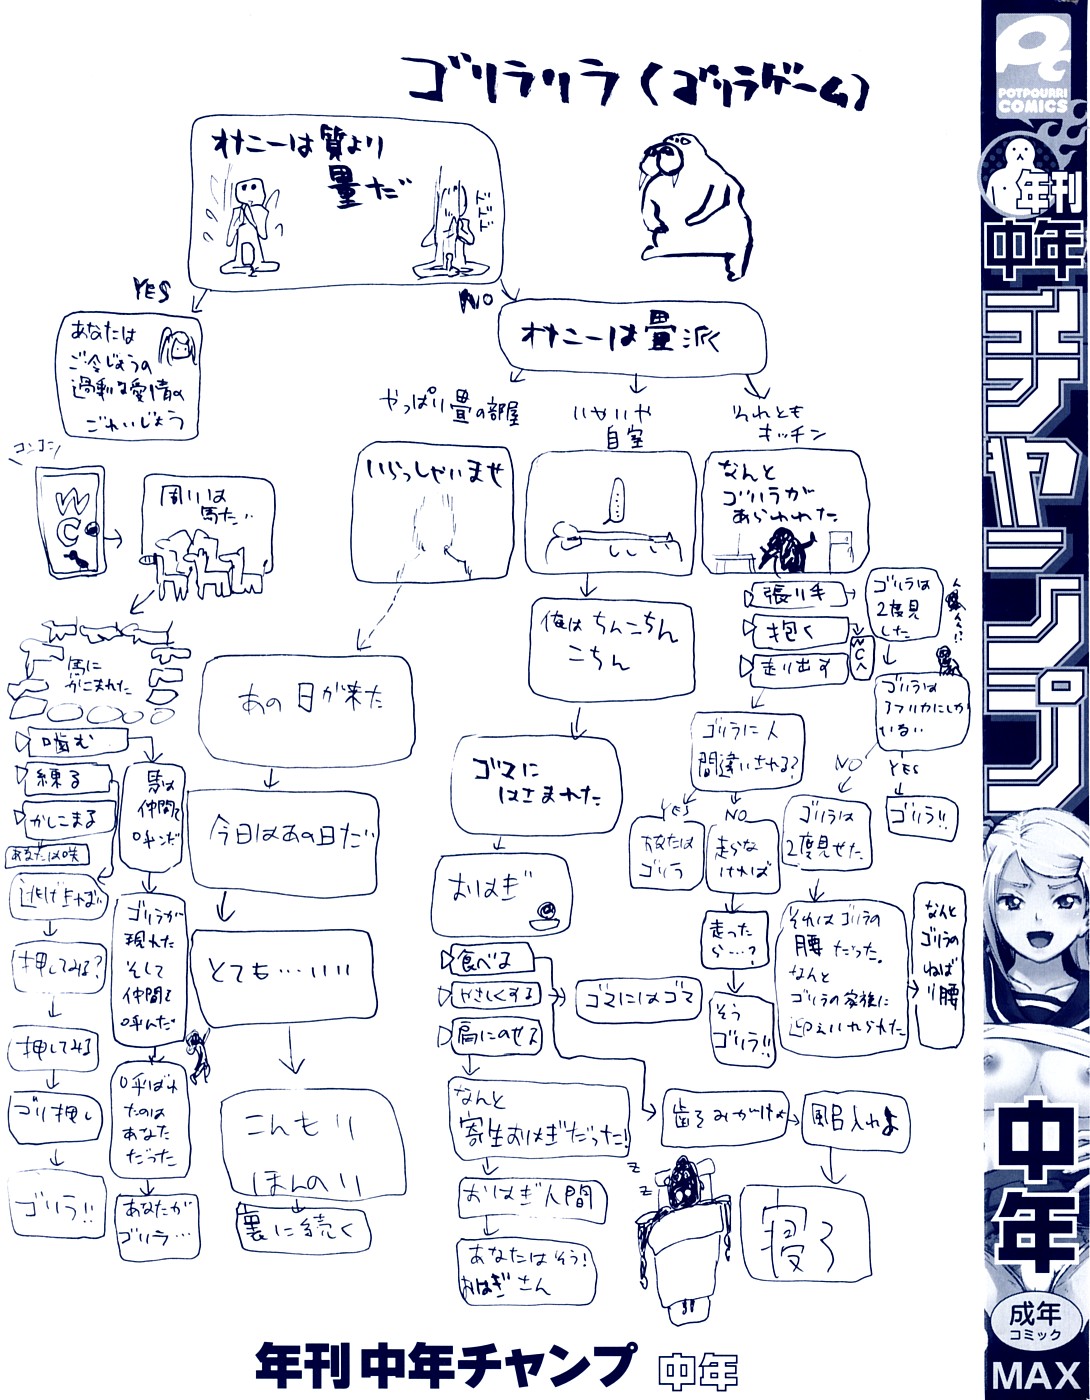 ゴリラリラ(ゴリラゲーム)
オナニーは質より
量だ
YES
NO
あなたは
ご令じょうの
過剰な愛情の
ごれいじょう
オナニーは畳派
やっぱり畳の部屋
いやいや
自室
それとも
キッチン
コンコン
WC
周りは
馬だ…
いらっしゃいませ
なんと
ゴリラが
あらわれた
張り手
抱く
走り出す
WCへ
ゴリラは
2度見
した
ゴリラは
アフリカにしか
いない
NO
YES
ゴリラ!!
俺はちんこちん
こちん
馬に
かこまれた
噛む
練る
かしこまる
あなたは咲
逃げよば
押してみる?
押してみる
ゴリ押し
ゴリラ!!
馬は
仲間を
呼んだ
ゴリラが
現れた
そして
仲間を
呼んだ
呼ばれ
たのは
あなた
だった
あなたが
ゴリラ…
あの日が来た
今日はあの日だ
とても…いい
こんもり
ほんのり
裏に続く
ゴマに
はさまれた
おはぎ
食べる
やさしくする
肩にのせる
ゴマにはゴマ
なんと
寄生おはぎだった!
おはぎ人間
あなたはそう!
おはぎさん
歯をみがけよ
風呂入れよ
寝ろ
z
z
ゴリラに人
間違いされる?
YES
NO
あなたは
ゴリラ
走らな
ければ
走った
ら…?
そう
ゴリラ!!
ゴリラは
2度見せた
それはゴリラの
腰だった。
なんと
ゴリラの家族に
迎えいれられた
なんと
ゴリラの
ねば
り腰
年刊 中年チャンプ 中年
POTPOURRI
COMICS
年刊
中年
チャンプ
中年
成年
コミック
MAX